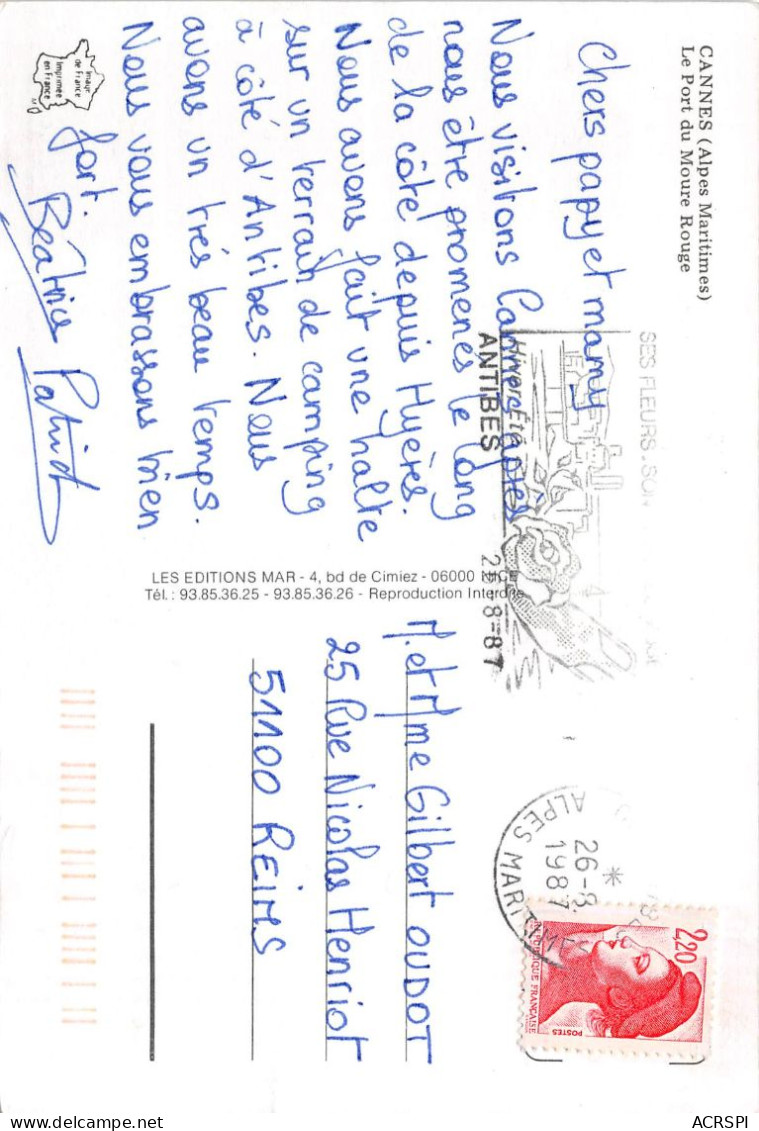 CANNES (Alpes Maritimes)
Le Port du Moure Rouge
Chers papy et mamy
Nous visitons Cannes après
nous être promenés le long
de la côte depuis Hyères.
Nous avons fait une halte
sur un terrain de camping
à côté d'Antibes. Nous
avons un très beau temps.
Nous vous embrassons bien
fort.
Béatrice Patrick
Image
de France
Imprimée
en France
LES EDITIONS MAR - 4, bd de Cimiez - 06000 NICE
Tél. : 93.85.36.25 - 93.85.36.26 - Reproduction Interdite
SES FLEURS. SON
Hiver Eté
ANTIBES
26-8-87
26-8
1987
*
ALPES MARITIMES
2,20
REPUBLIQUE FRANÇAISE
POSTES
M. et Mme Gilbert OUDOT
25 Rue Nicolas Henriot
51100 REIMS
ACRSPI